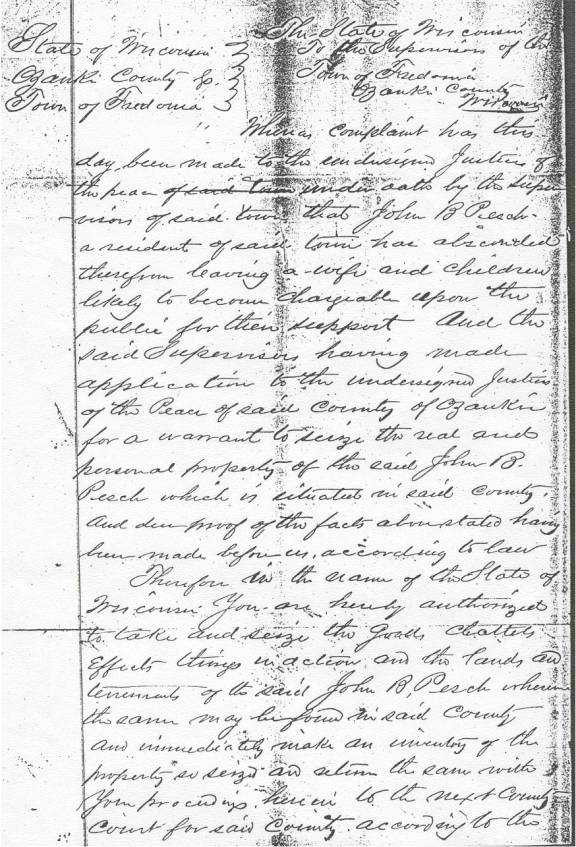 State of Wisconsin
Ozaukie County ss.
Town of Fredonia
The State of Wisconsin
To the Supervisors of the
Town of Fredonia
Ozaukie County
Wisconsin
Whereas complaint has this
day been made to the undersigned Justices of
the peace of said Town under oath by the Super
visors of said town that John B Pesch
a resident of said town has absconded
therefrom leaving a wife and children
likely to become chargeable upon the
public for their support And the
said Supervisors having made
application to the undersigned Justices
of the Peace of said County of Ozaukie
for a warrant to seize the real and
personal property of the said John B.
Pesch which is situated in said County.
And due proof of the facts above stated having
been made before us, according to law
Therefore in the name of the State of
Wisconsin You are hereby authorized
to take and seize the Goods Chattels
Effects things in action and the lands and
tenements of the said John B. Pesch wherever
the same may be found in said County
and immediately make an inventory of the
property so seized and return the same with
your proceedings herein to the next County
Court for said County according to the